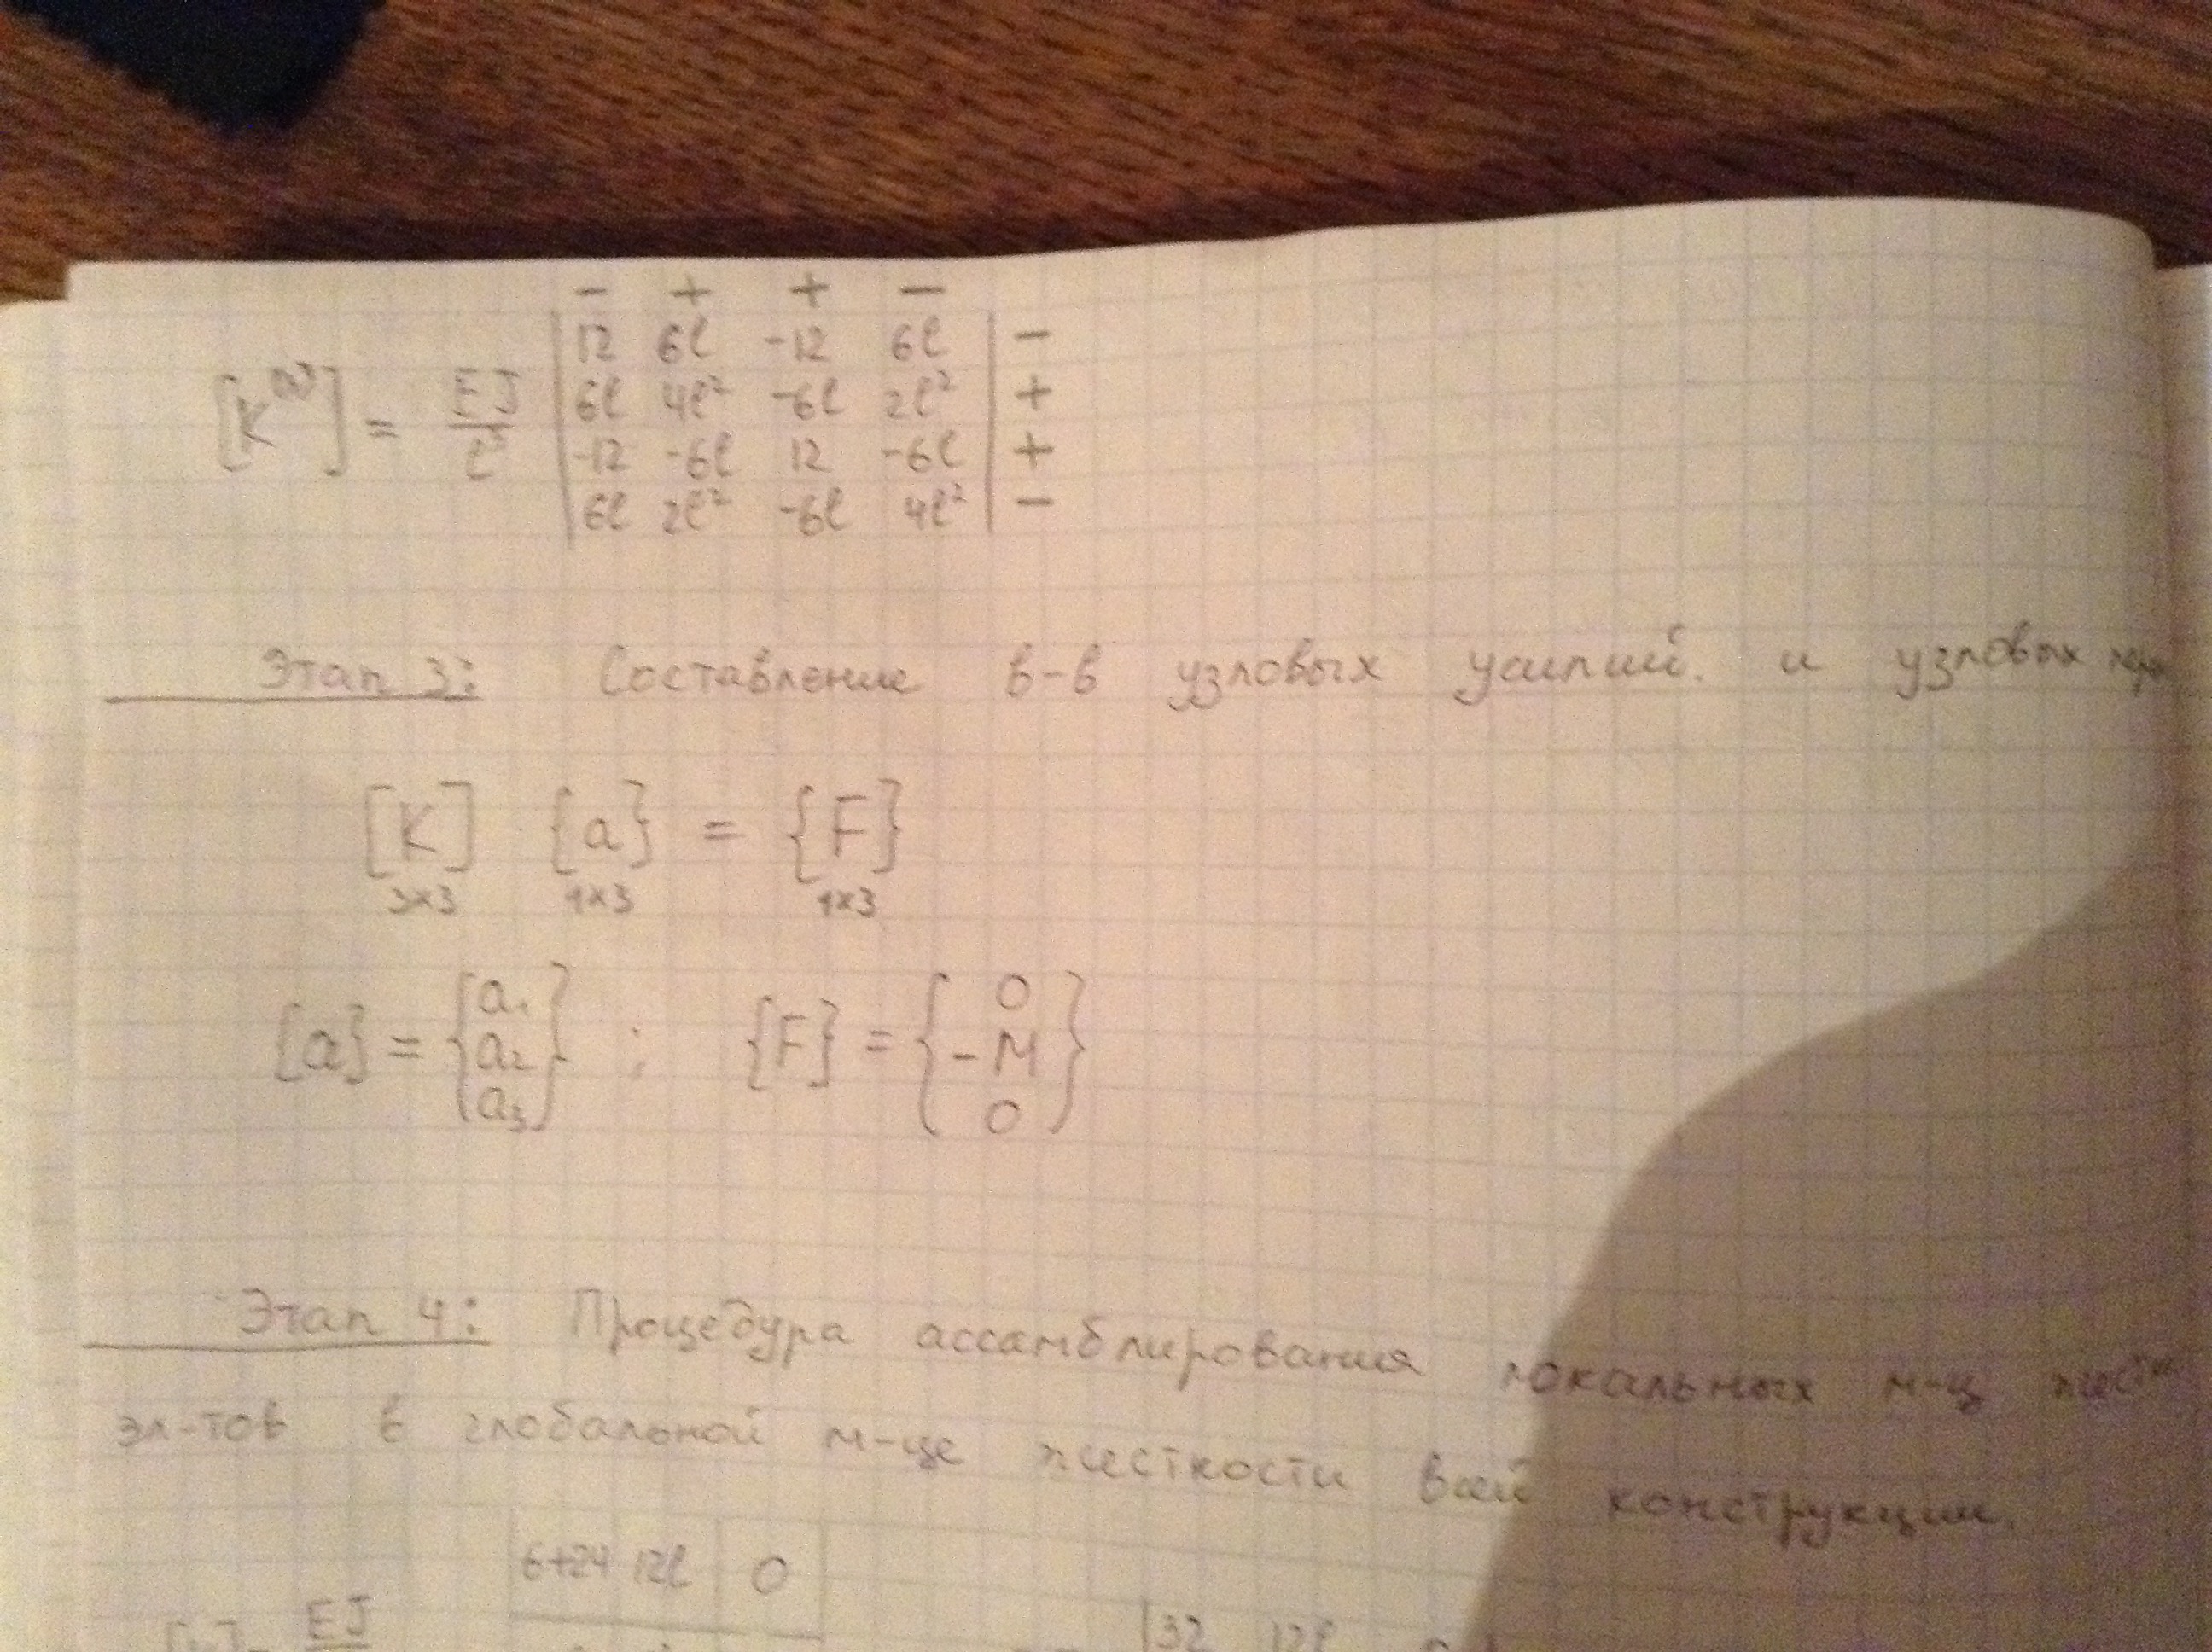 - + + -
12 6ℓ -12 6ℓ -
[K] = EJ/ℓ³ 6ℓ 4ℓ² -6ℓ 2ℓ² +
-12 -6ℓ 12 -6ℓ +
6ℓ 2ℓ² -6ℓ 4ℓ² -
Этап 3: Составление в-в узловых усилий. и узловых
[K] {a} = {F}
3×3 1×3 1×3
{a} = {a₁ a₂ a₃} ; {F} = {0 -M 0}
Этап 4: Процедура ассамблирования локальных м-ц
эл-тов в глобальной м-це жесткости всей конструкции.
6+24 12ℓ 0
EJ
32 12ℓ